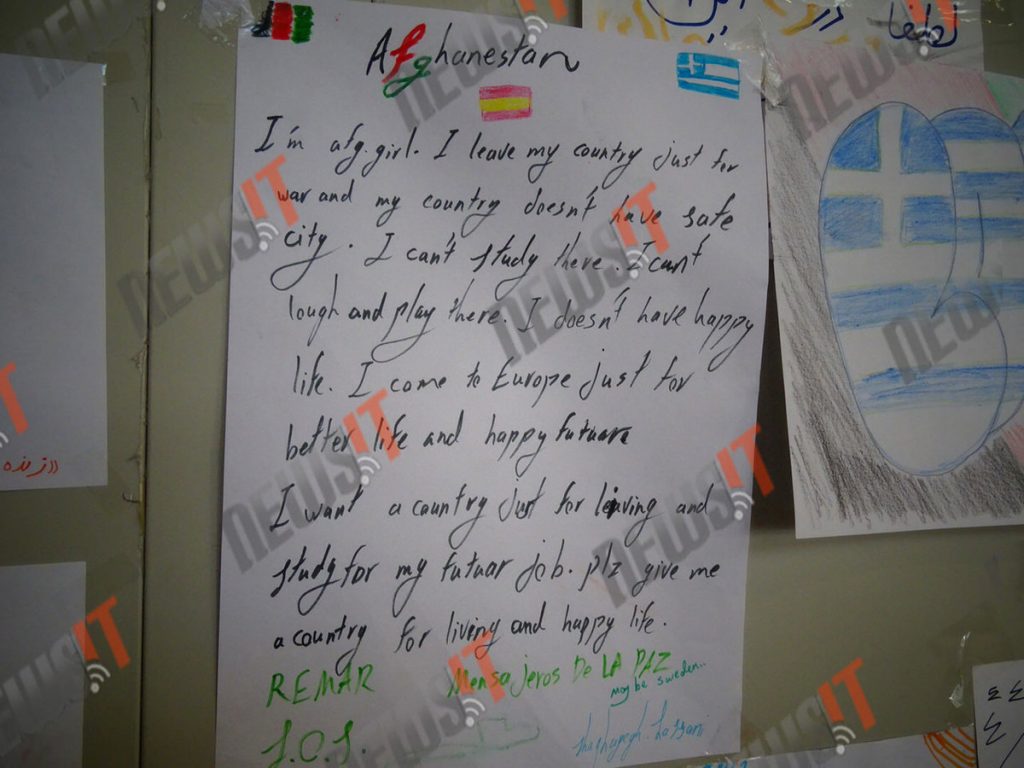 Afghanestan
I'm afg.girl. I leave my country just for
war and my country doesn't have safe
city. I can't study there. I can't
lough and play there. I doesn't have happy
life. I come to Europe just for
better life and happy futuare
I want a country just for leiving and
study for my futuar job. plz give me
a country for living and happy life.
REMAR Mensajeros De LA PAZ
may be sweden..
S.O.S.
لطفا
زنده
NEWSIT
NEWSIT
NEWSIT
NEWSIT
NEWSIT
NEWSIT
NEWSIT
NEWSIT
NEWSIT